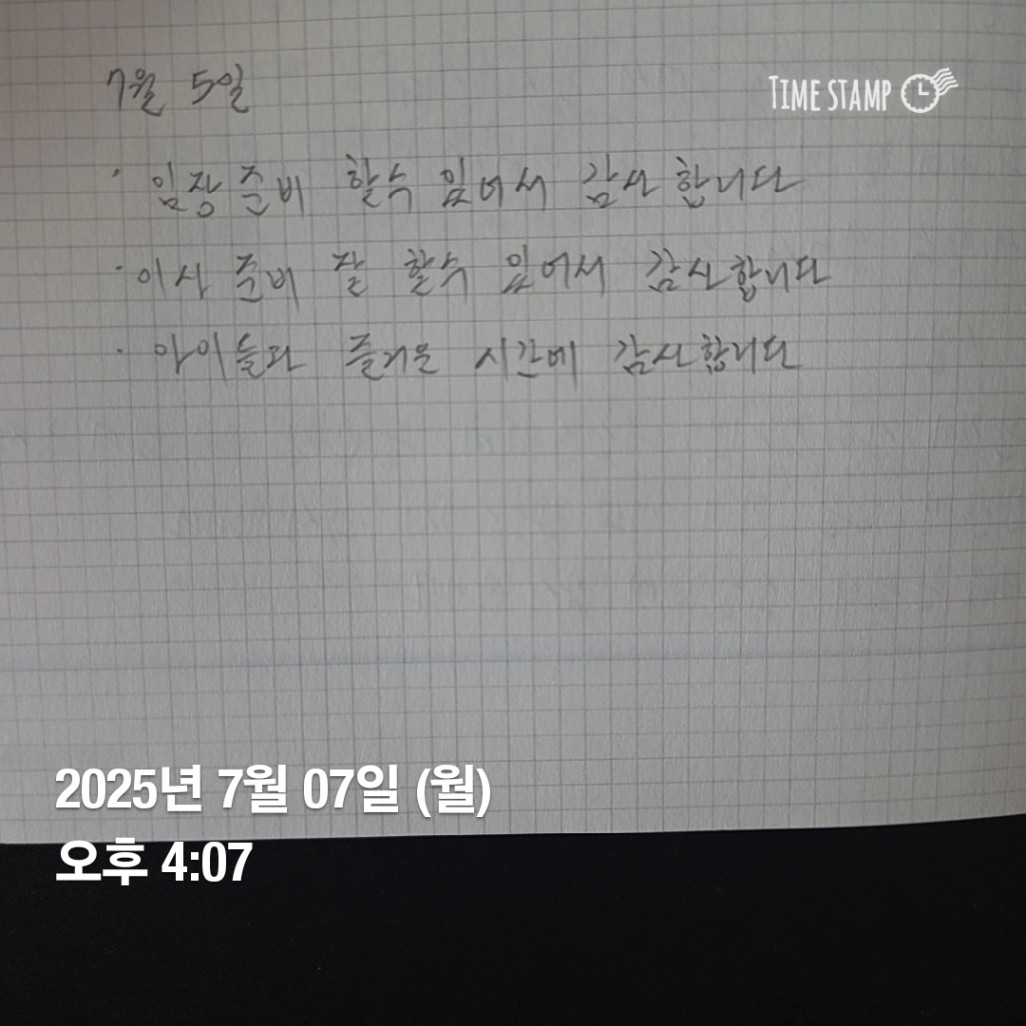 7월 5일
TIME STAMP
· 임장 준비 할수 있어서 감사합니다
· 이사 준비 잘 할수 있어서 감사합니다
· 아이들과 즐거운 시간에 감사합니다
2025년 7월 07일 (월)
오후 4:07